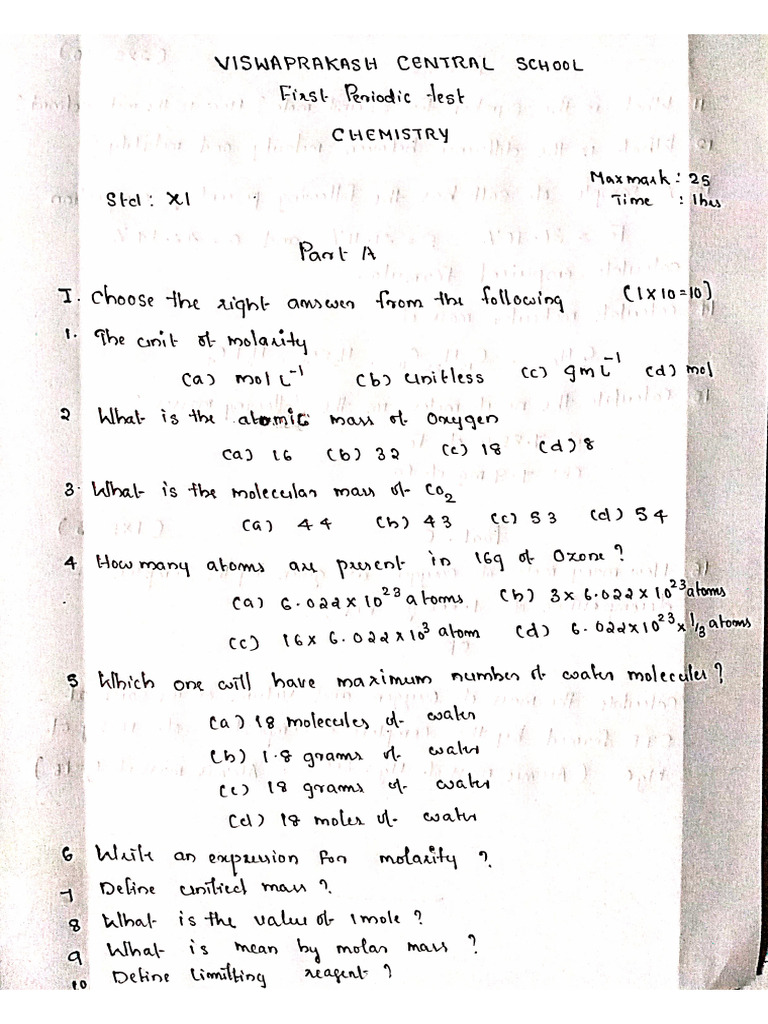 VISWAPRAKASH CENTRAL SCHOOL
First Periodic test
CHEMISTRY
Max mark : 25
Std : XI
Time : 1hrs
Part A
I. Choose the right answer from the following (1 X 10 = 10)
1. The unit of molarity
(a) mol L⁻¹ (b) unitless (c) gm L⁻¹ (d) mol
2 What is the atomic mass of Oxygen
(a) 16 (b) 32 (c) 18 (d) 8
3. What is the molecular mass of CO₂
(a) 44 (b) 43 (c) 53 (d) 54
4 How many atoms are present in 16g of Ozone ?
(a) 6.022 x 10²³ atoms (b) 3 x 6.022 x 10²³ atoms
(c) 16 x 6.022 x 10³ atom (d) 6.022 x 10²³ x 1/3 atoms
5 Which one will have maximum number of water molecules ?
(a) 18 molecules of water
(b) 1.8 grams of water
(c) 18 grams of water
(d) 18 moles of water
6 Write an expression for molarity ?
7 Define unified mass ?
8 What is the value of 1 mole ?
9 What is mean by molar mass ?
10 Define limiting reagent ?